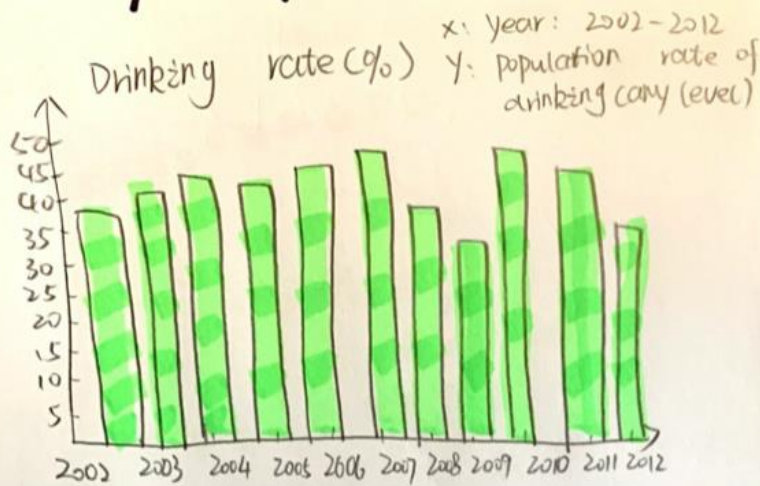 x: year: 2002-2012
Drinking rate (%)
y: population rate of
drinking (any level)
50
45
40
35
30
25
20
15
10
5
2002 2003 2004 2005 2006 2007 2008 2009 2010 2011 2012